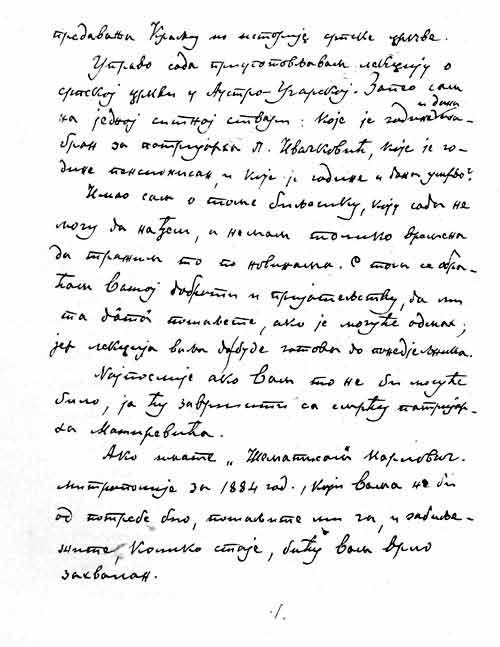 предавања Краљу из историје српске цркве.
Управо сада приуготовљавам лекцију о
српској цркви у Аустро-Угарској. Запео сам
на једној ситној ствари: које је године и дана иза-
бран за патријарха П. Ивачковић, које је го-
дине пенсионисан, и које је године и дана умрьо?
Имао сам о томе билешку, коју сада не
могу да нађем, а немам толико времена
да тражим то по новинама. С тога се обра-
ћам Вашој доброти и пријатељству, да ми
та дата пошаљете, ако је могуће одмах;
јер лекција ваља да буде готова до понедељника.
Најпослије ако Вам то не би могуће
било, ја ћу завршити са смрћу патријар-
ха Маширевића.
Ако имате „Шематисам Карлович.
митрополије за 1884 год., који Вама не би
од потребе био, пошаљите ми га, и забиље-
жите, колико стаје, бићу вам врло
захвалан.
./.